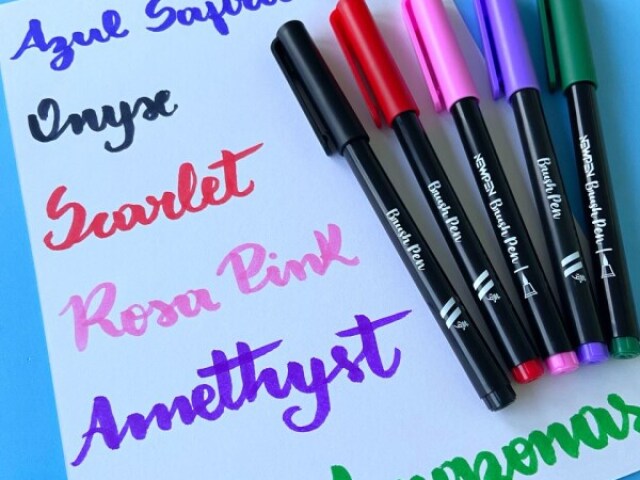 Azul Safira
Onyx
Scarlet
Rosa Pink
Amethyst
Amazonas
Brush Pen
Brush Pen
NEWPEN Brush Pen
Brush Pen
NEWPEN Brush Pen